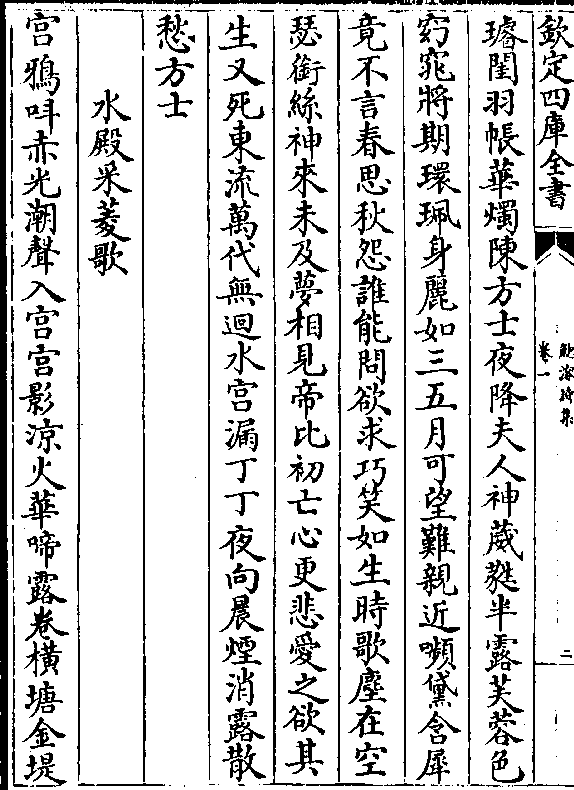 欽定四庫全書
鮑溶詩集
卷一
二
璿閨羽帳華燭陳方士夜降夫人神葳蕤半露芙蓉色
窈窕將期環珮身麗如三五月可望難親近嚬黛含犀
竟不言春思秋怨誰能問欲求巧笑如生時歌塵在空
瑟銜絲神來未及夢相見帝比初亡心更悲愛之欲其
生又死東流萬代無迴水宫漏丁丁夜向晨煙消露散
愁方士
水殿采菱歌
宫鴉呌赤光潮聲入宫宫影涼火華啼露卷横塘金堤